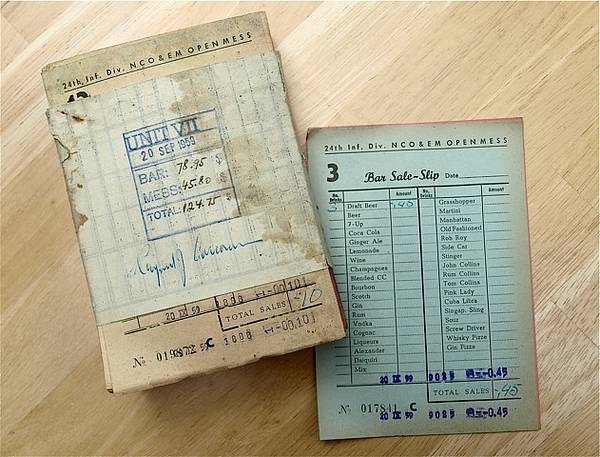 24th, Inf. Div. NCO & EM OPEN MESS
UNIT VII
20 SEP 1959
BAR: 78.95 $
MESS: 45.80 $
TOTAL: 124.75 $
20 IX 59
TOTAL SALES -10
24th Inf. Div. NCO & EM OPEN MESS
3 Bar Sale-Slip Date
No. Drinks Amount No. Drinks Amount
3 Draft Beer -.45
Beer
7-Up
Coca Cola
Ginger Ale
Lemonade
Wine
Champagnes
Blended CC
Bourbon
Scotch
Gin
Rum
Vodka
Cognac
Liqueurs
Alexander
Daiquiri
Mix
Grasshopper
Martini
Manhattan
Old Fashioned
Rob Roy
Side Car
Stinger
John Collins
Rum Collins
Tom Collins
Pink Lady
Cuba Libra
Singap. Sling
Sour
Screw Driver
Whisky Fizze
Gin Fizze
20 IX 59 9025 -0.45
TOTAL SALES -.45
№ 017841 C
20 IX 59 9025 -0.45